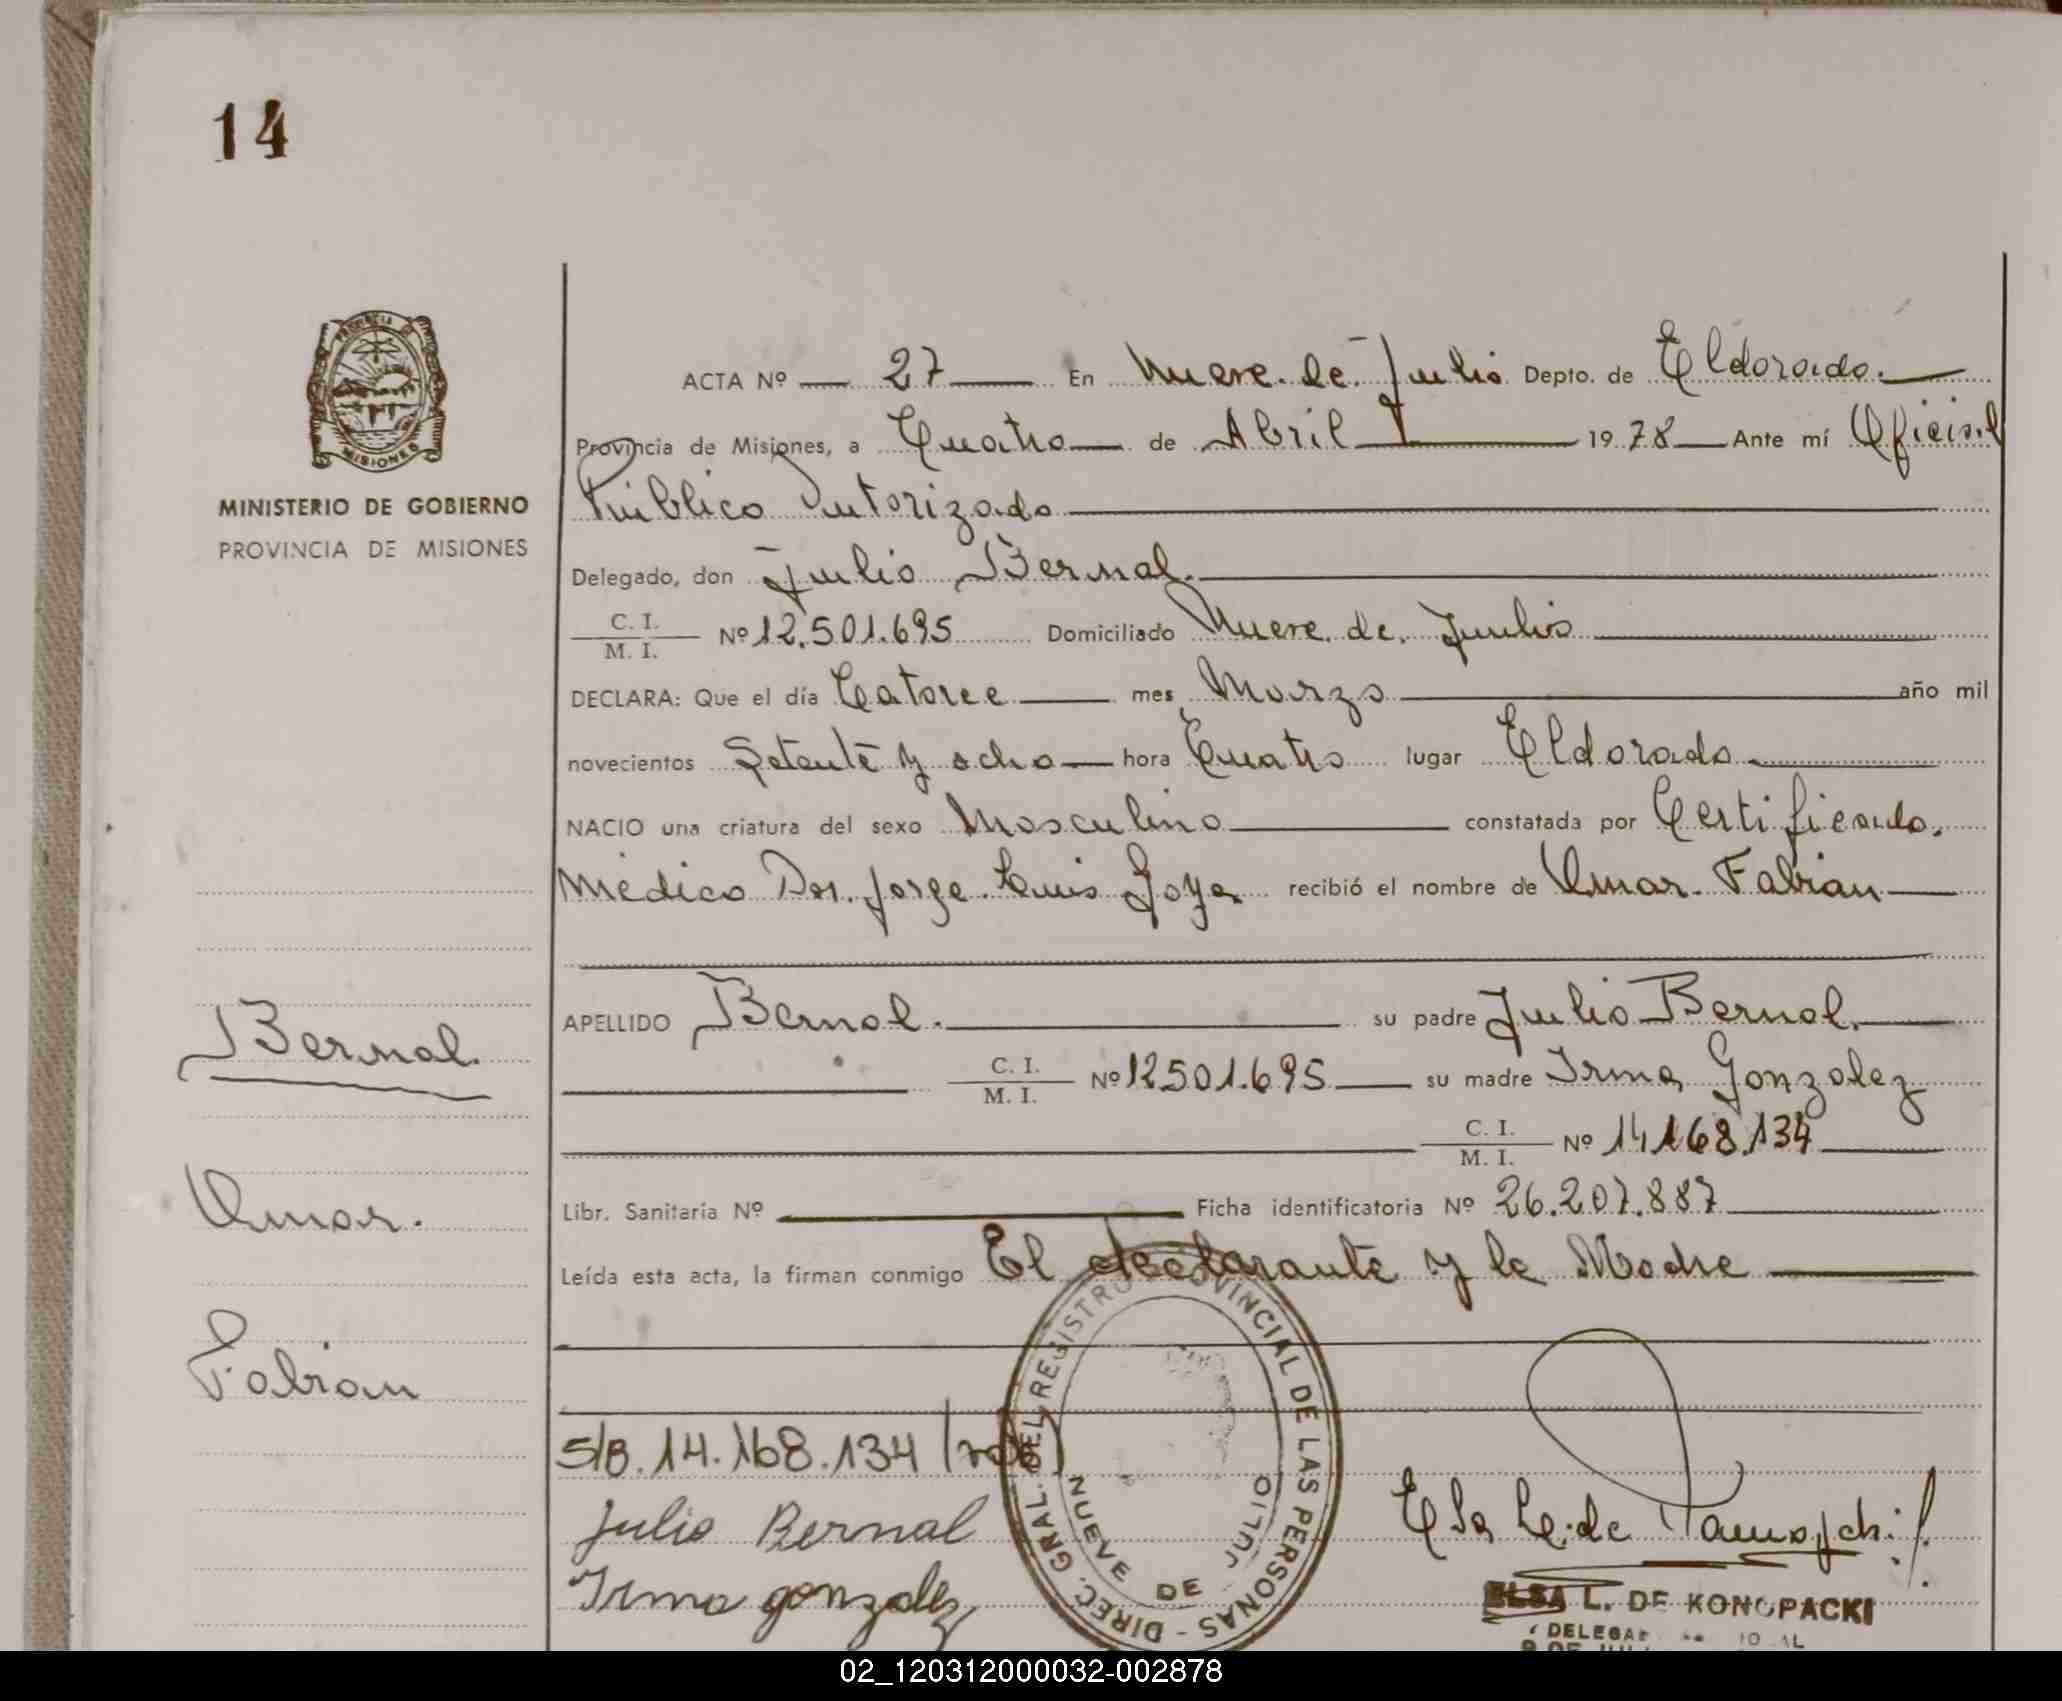 14
PROVINCIA DE
MISIONES
MINISTERIO DE GOBIERNO
PROVINCIA DE MISIONES
ACTA Nº 27 En Nueve de Julio Depto. de Eldorado.
Provincia de Misiones, a Cuatro de Abril 1978 Ante mí Oficial
Público Autorizado
Delegado, don Julio Bernal.
C. I. / M. I. Nº 12.501.695 Domiciliado Nueve de Julio
DECLARA: Que el día Catorce mes Marzo año mil
novecientos Setenta y ocho hora Cuatro lugar Eldorado
NACIO una criatura del sexo Masculino constatada por Certificado
Médico Dor. Jorge Luis Goya recibió el nombre de Omar Fabian
APELLIDO Bernal. su padre Julio Bernal.
C. I. / M. I. Nº 12501.695 su madre Irma Gonzalez
C. I. / M. I. Nº 14.168.134
Libr. Sanitaria Nº Ficha identificatoria Nº 26.207.887
Leída esta acta, la firman conmigo El declarante y la Madre
Bernal.
Omar.
Fabian
S/B. 14.168.134
Julio Bernal
Irma gonzalez
DIREC. GRAL. DEL REGISTRO PROVINCIAL DE LAS PERSONAS -
NUEVE DE JULIO
Elsa L. de
ELSA L. DE KONOPACKI
DELEGAD
9 DE JULIO
02_120312000032-002878